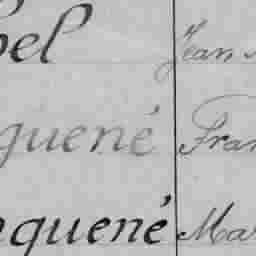 bel Jean
quené Fran
nquené Mar